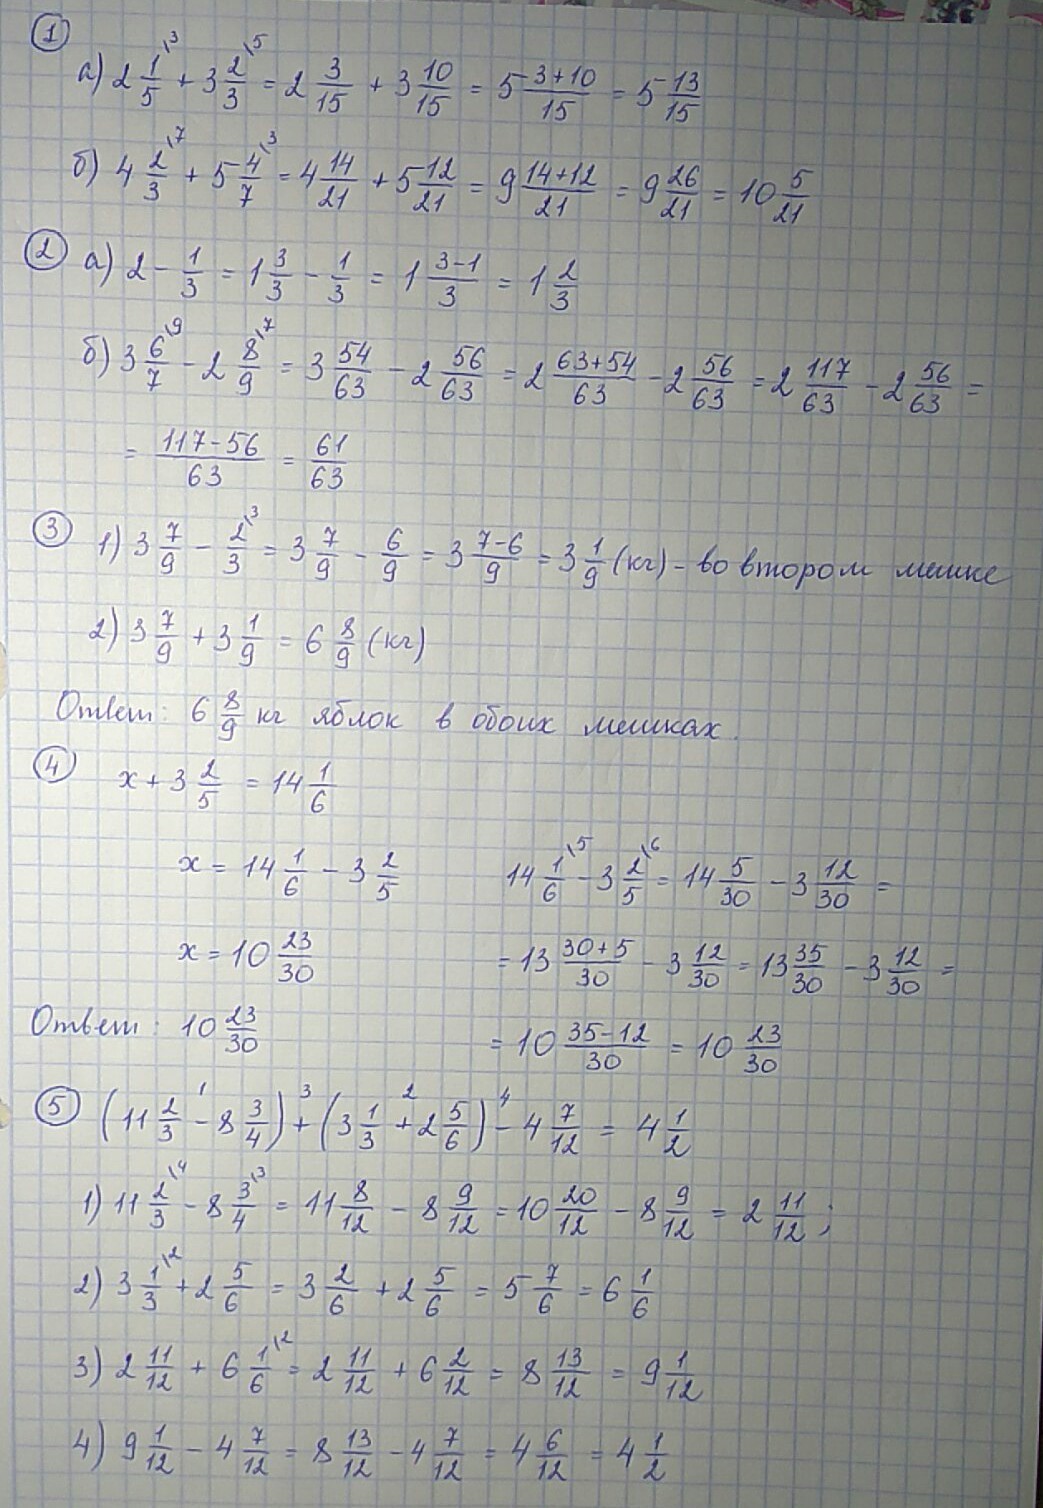 1
а) 2 1/5 \3 + 3 2/3 \5 = 2 3/15 + 3 10/15 = 5 (3+10)/15 = 5 13/15
б) 4 2/3 \7 + 5 4/7 \3 = 4 14/21 + 5 12/21 = 9 (14+12)/21 = 9 26/21 = 10 5/21
2 а) 2 - 1/3 = 1 3/3 - 1/3 = 1 (3-1)/3 = 1 2/3
б) 3 6/7 \9 - 2 8/9 \7 = 3 54/63 - 2 56/63 = 2 (63+54)/63 - 2 56/63 = 2 117/63 - 2 56/63 =
= (117-56)/63 = 61/63
3 1) 3 7/9 - 2/3 \3 = 3 7/9 - 6/9 = 3 (7-6)/9 = 3 1/9 (кг) - во втором мешке
2) 3 7/9 + 3 1/9 = 6 8/9 (кг)
Ответ: 6 8/9 кг яблок в обоих мешках.
4 x + 3 2/5 = 14 1/6
x = 14 1/6 - 3 2/5
14 1/6 \5 - 3 2/5 \6 = 14 5/30 - 3 12/30 =
x = 10 23/30
= 13 (30+5)/30 - 3 12/30 = 13 35/30 - 3 12/30 =
Ответ: 10 23/30
= 10 (35-12)/30 = 10 23/30
1 3 2 4
5 (11 2/3 - 8 3/4) + (3 1/3 + 2 5/6) - 4 7/12 = 4 1/2
1) 11 2/3 \4 - 8 3/4 \3 = 11 8/12 - 8 9/12 = 10 20/12 - 8 9/12 = 2 11/12 ;
2) 3 1/3 \2 + 2 5/6 = 3 2/6 + 2 5/6 = 5 7/6 = 6 1/6
3) 2 11/12 + 6 1/6 \2 = 2 11/12 + 6 2/12 = 8 13/12 = 9 1/12
4) 9 1/12 - 4 7/12 = 8 13/12 - 4 7/12 = 4 6/12 = 4 1/2